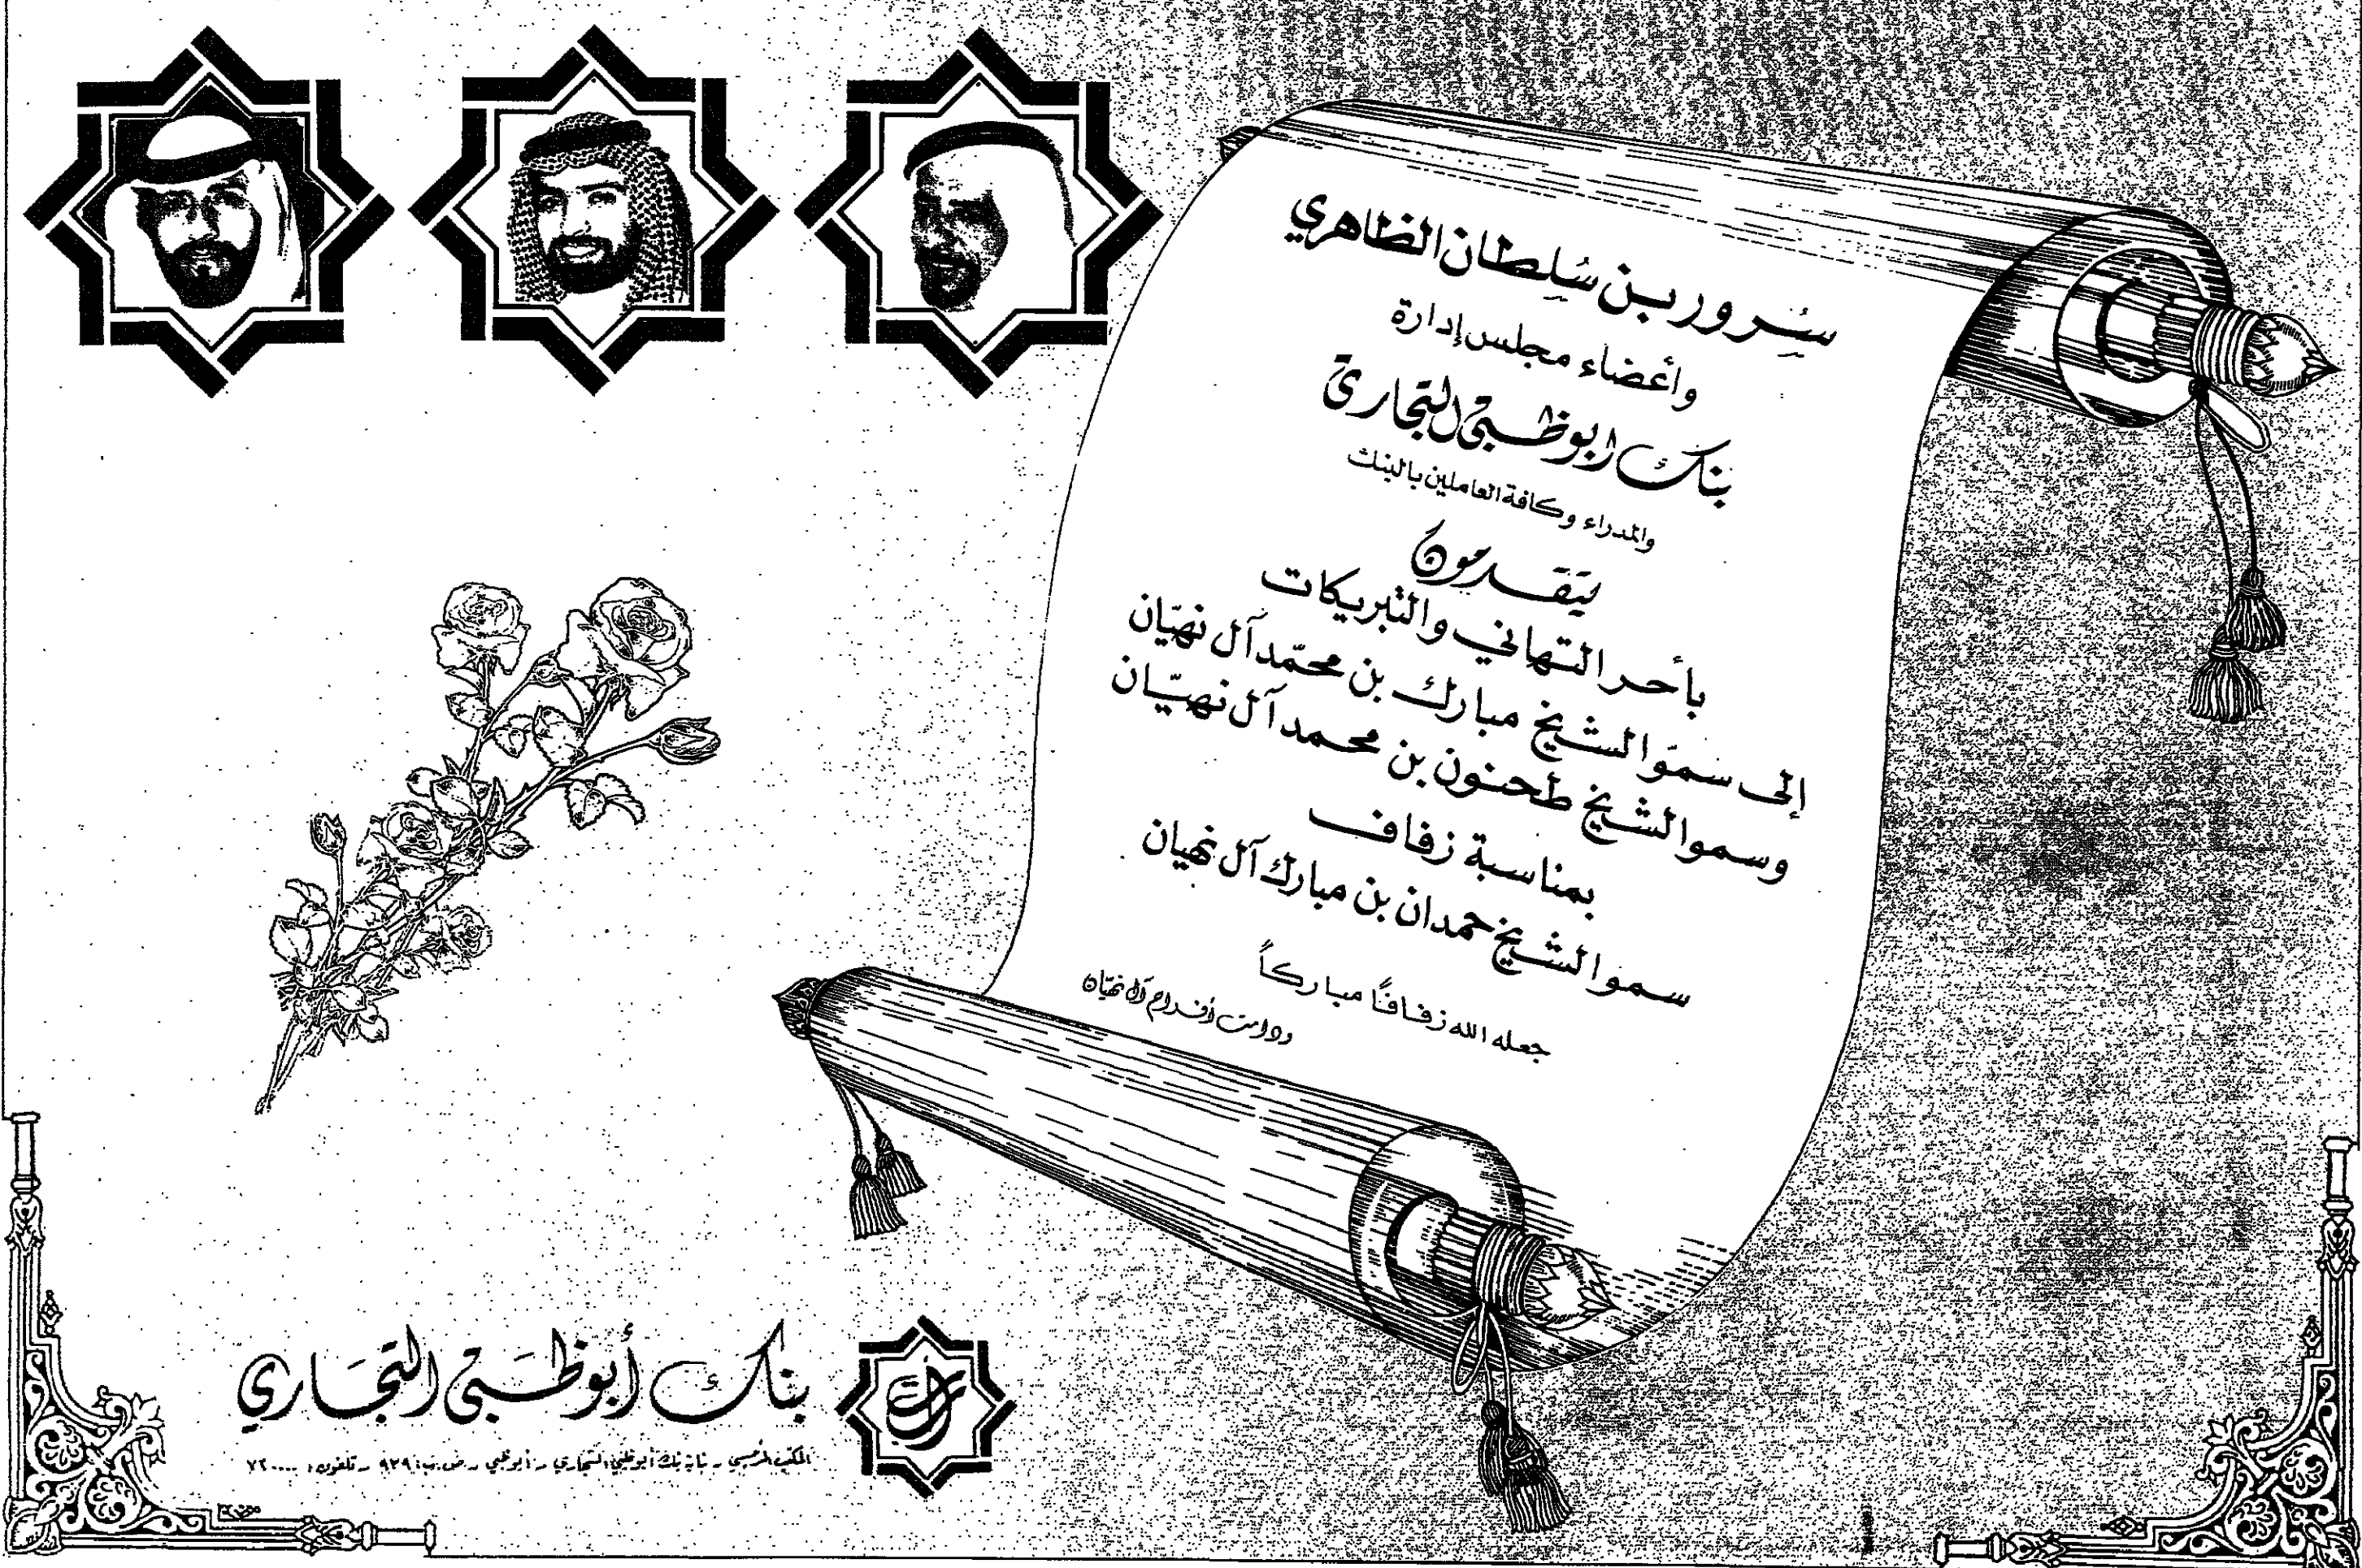 سرور بن سلطان الظاهري
وأعضاء مجلس إدارة
بنك ابوظبي التجاري
والمدراء وكافة العاملين بالبنك
يتقدمون
بأحر التهاني والتبريكات
إلى سمو الشيخ مبارك بن محمد آل نهيان
وسمو الشيخ طحنون بن محمد آل نهيان
بمناسبة زفاف
سمو الشيخ حمدان بن مبارك آل نهيان
جعله الله زفافاً مباركاً
ودامت أفراح آل نهيان
بنك أبوظبي التجاري
المكتب الرئيسي - بناية بنك أبوظبي التجاري - أبوظبي - ص.ب: ٩٣٩ - تلفون: ٧٢٠٠٠٠